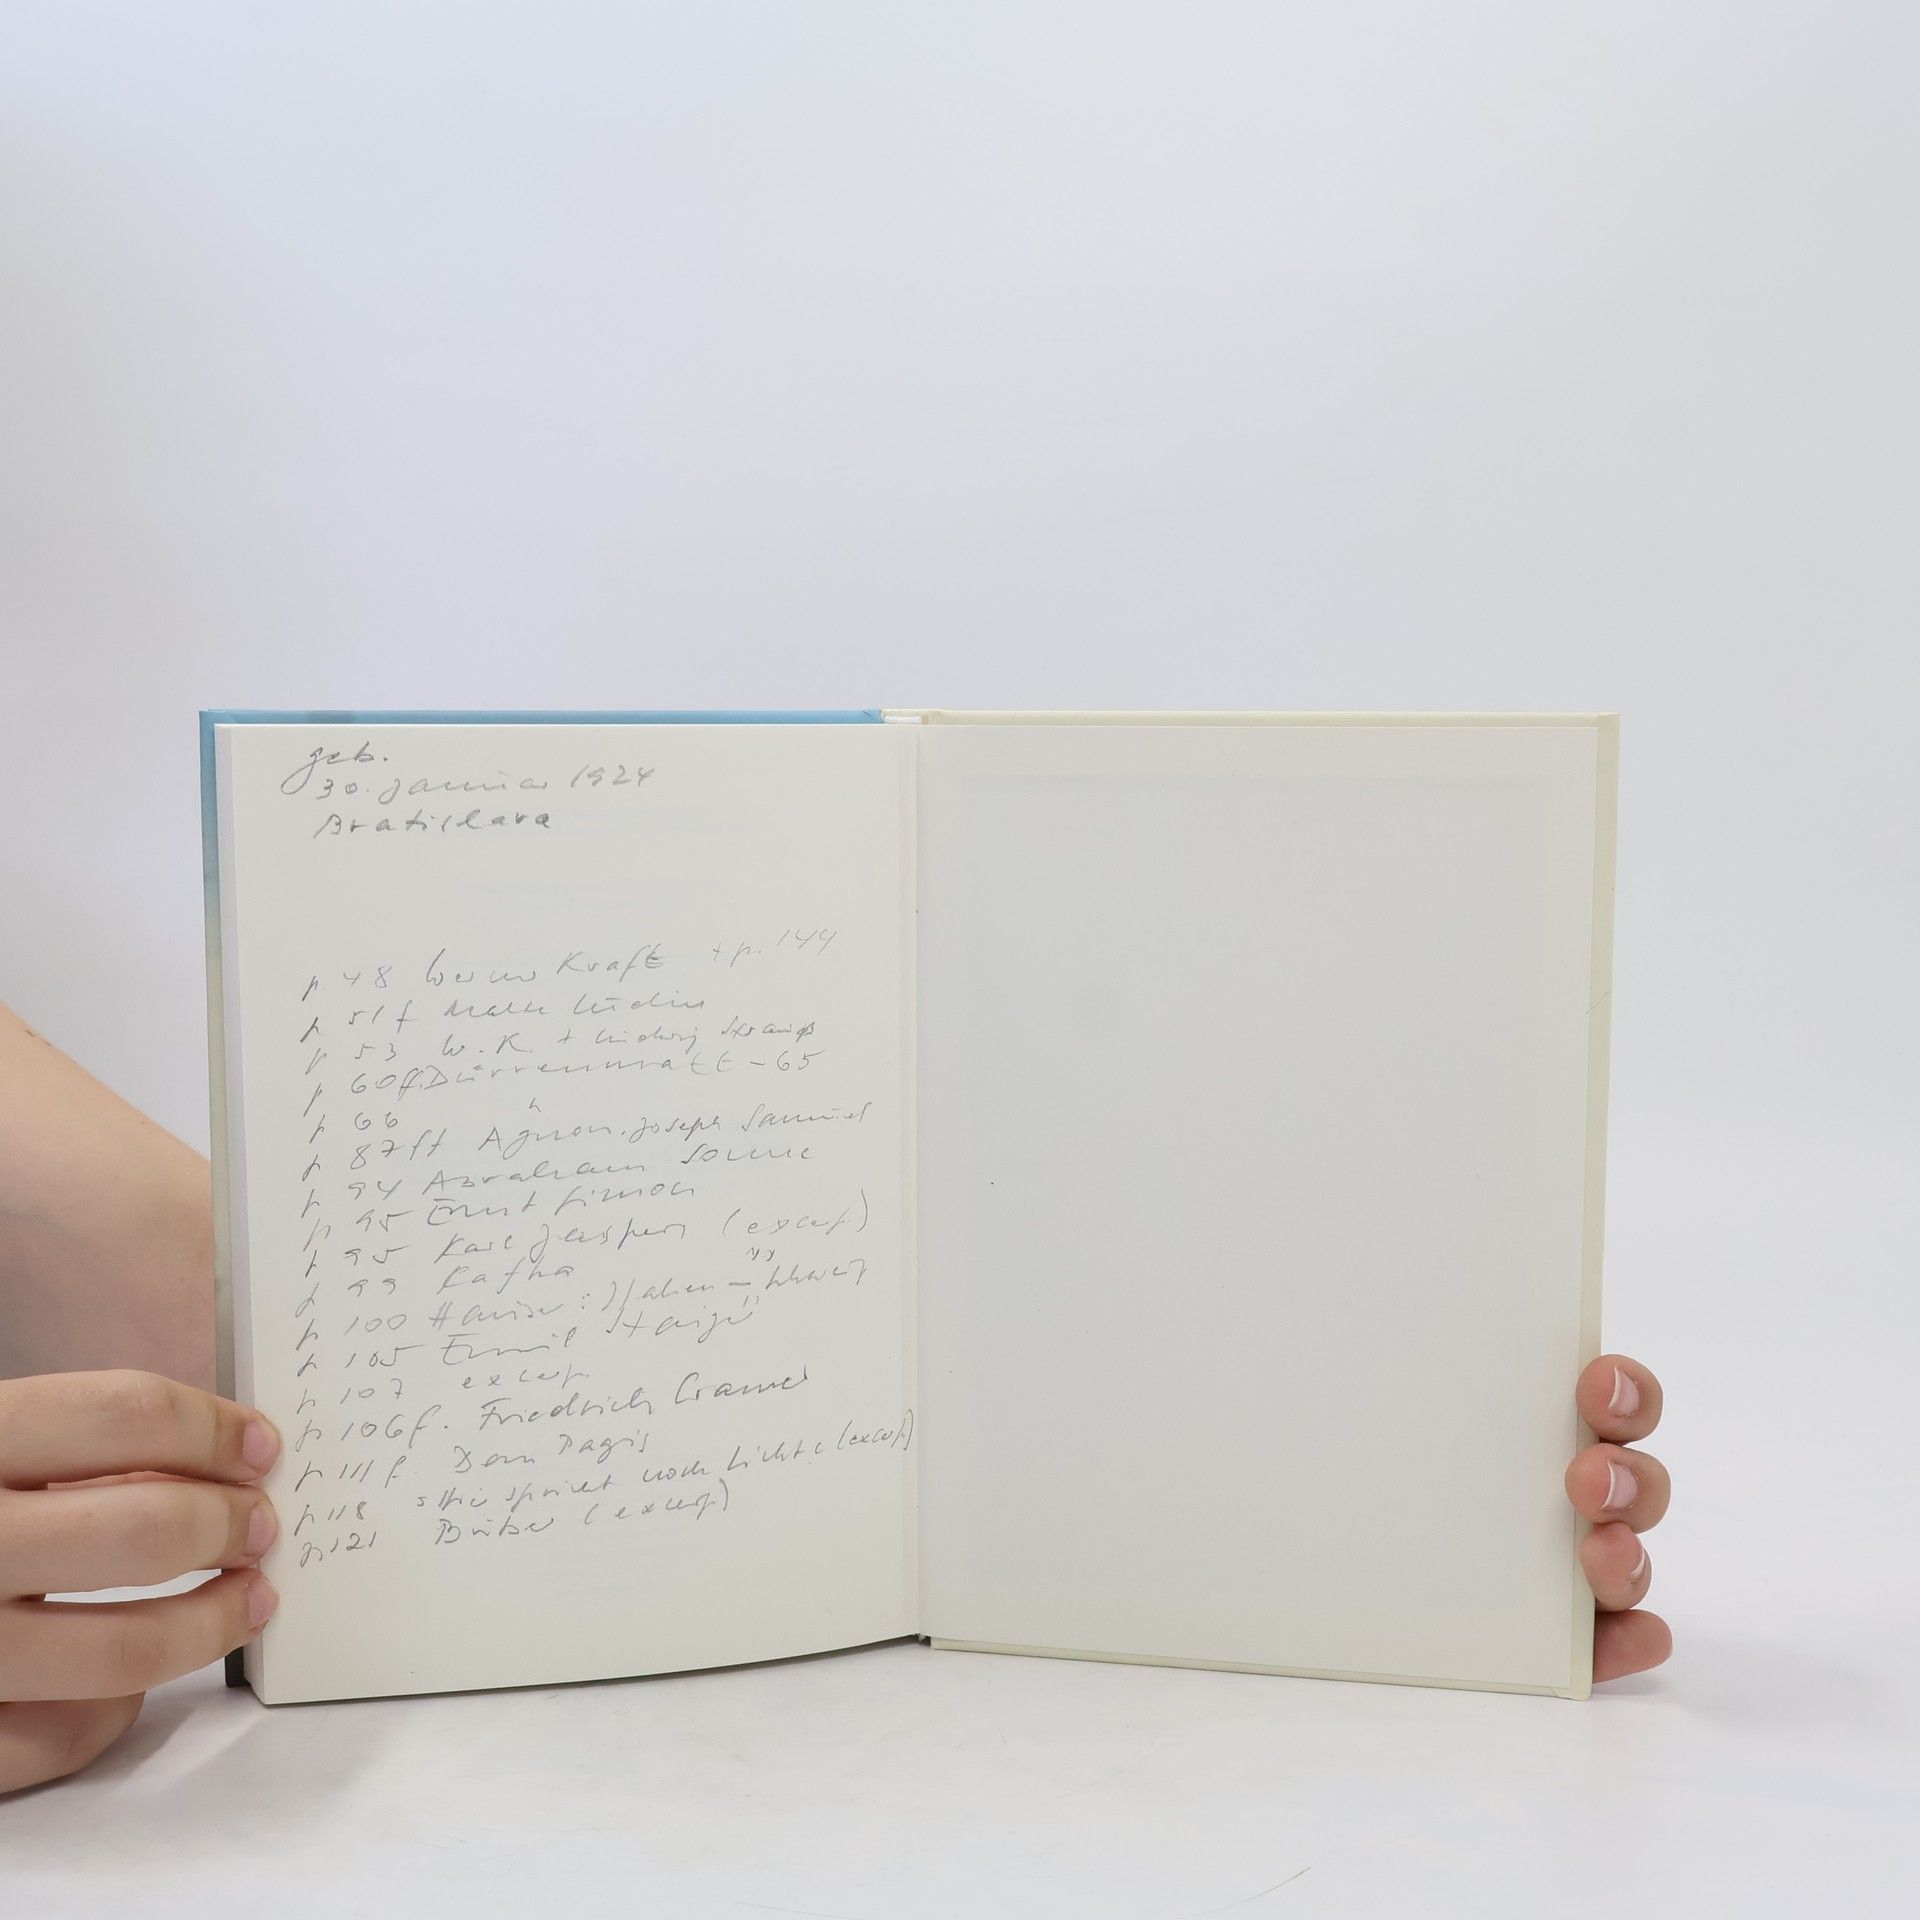 geb.
30. Januar 1924
Bratislava
p. 48 Werner Kraft + p. 144
p 51f
p 53 W. K. + Ludwig Strauß
p 60ff. Dürrenmatt - 65
p 66 "
p 87ff Agnon, Joseph Samuel
p 94 Abraham Sonne
p 95 Ernst Simon
p 95 Karl Jaspers (excerp.)
p 99 Kafka
p 100 : Italien –
p 105 Emil Staiger
p 107 excerp.
p 106f. Friedrich Cramer
p 111 f. Dan Pagis
p 118 spricht noch (excerp)
p 121 Buber (excerp)